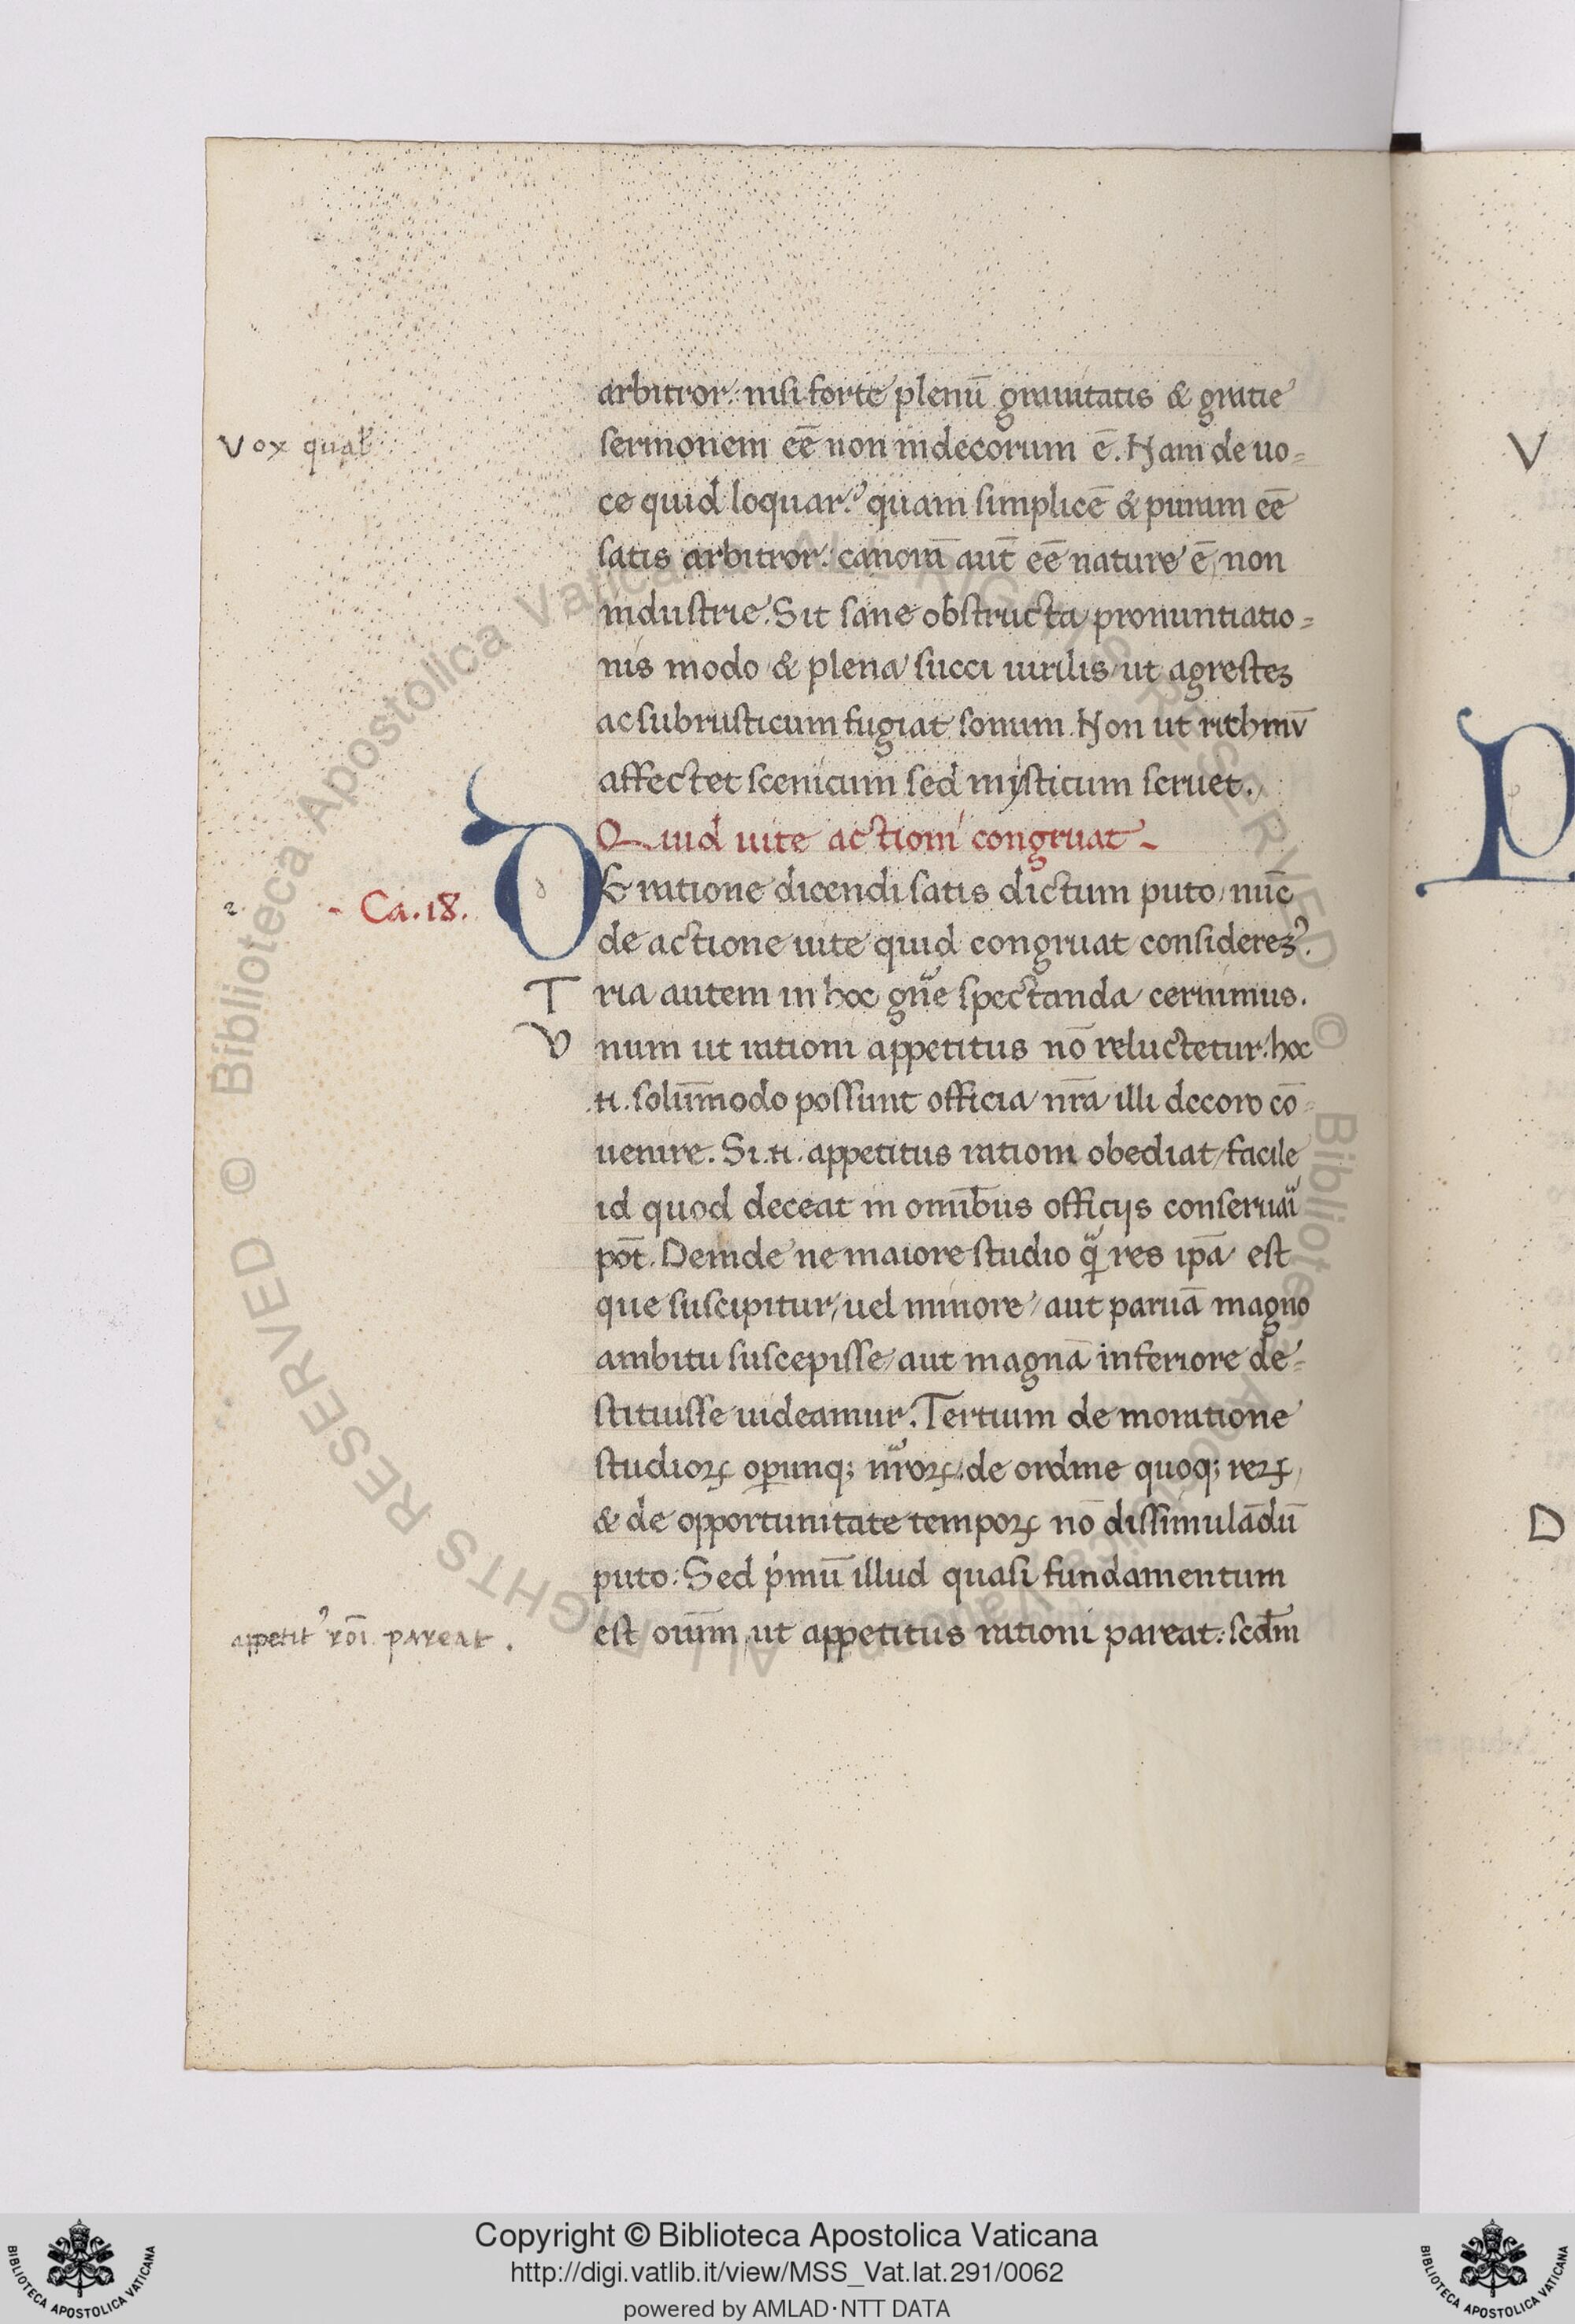 arbitror: nisi forte plenū grauitatis & gratie
Vox qual̄
sermonem eē non indecorum ē. Nam de uo=
ce quid loquar? quam simplicē & puram eē
satis arbitror: canorā aūt eē nature ē, non
industrie. Sit sane obstructa pronuntiatio=
nis modo & plena succi uirilis ut agresteʒ
ac subrusticum fugiat sonum. Non ut rithmv̄
affectet scenicum sed mysticum seruet.
Quid uite actioni congruat
- Ca. 18.
DE ratione dicendi satis dictum puto, nūc
de actione uite quid congruat consideremꝰ.
Tria autem in hoc gñe spectanda cernimus.
Vnum ut rationi appetitus nō reluctetur: hoc
.n. solūmodo possunt officia nr̄a illi decoro cō=
uenire. Si .n. appetitus rationi obediat, facile
id quod deceat in omībus officijs conseruaͥ
pōt. Deinde ne maiore studio qͣ̄ res ip̄a est
que suscipitur, uel minore, aut paruā magno
ambitu suscepisse, aut magnā inferiore de=
stituisse uideamur. Tertium de moratione
studioꝝ oꝑunq; nr̄oꝝ: de ordine quoq; reꝝ,
& de opportunitate tempoꝝ nō dissimulādū
puto: Sed pͥmū illud quasi fundamentum
appetitꝰ rōi pareat.
est oīum, ut appetitus rationi pareat: scd̄m
Copyright © Biblioteca Apostolica Vaticana
http://digi.vatlib.it/view/MSS_Vat.lat.291/0062
powered by AMLAD·NTT DATA
BIBLIOTECA APOSTOLICA VATICANA
BIBLIOTECA APOSTOLICA VATICANA